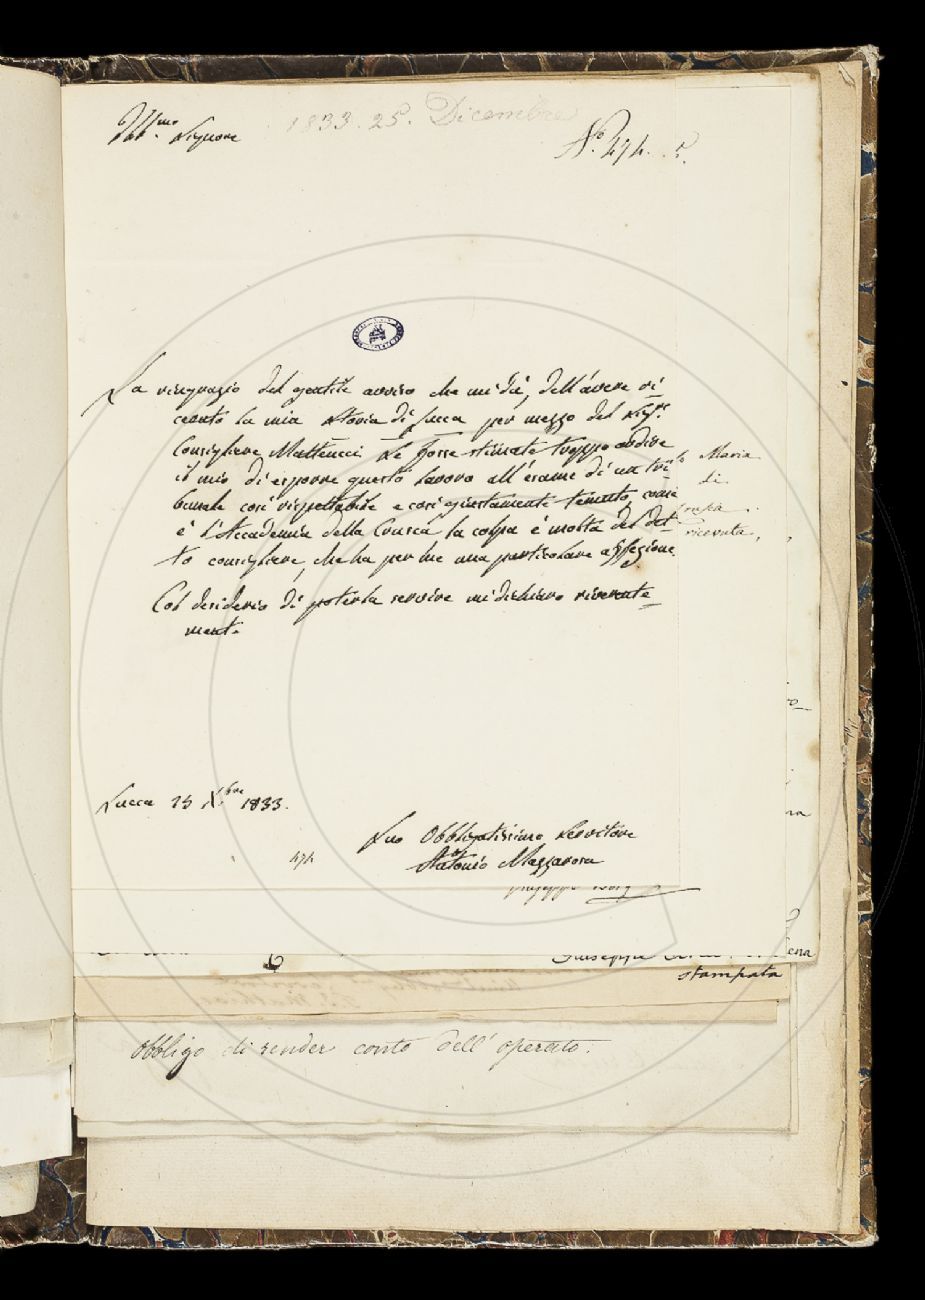 Ill.mo Signore
1833. 25. Dicembre
N.º 474. 5.
La ringrazio del gentile avviso che mi dà, dell'avere ri
cevuto la mia Storia di Lucca per mezzo del Sig.r
Consigliere Matteucci Se fosse stimato troppo ardire
il mio di esporre questo lavoro all'esame di un tri
bunale così rispettabile e così giustamente temuto, com'
è l'Accademia della Crusca, la colpa è molta del det
to consigliere, che ha per me una particolare affezione.
Col desiderio di poterla servire mi dichiaro riverente
mente
Maria
di
ricevuta,
Lucca 25 X.bre 1833.
Suo Obbligatissimo Servitore
Antonio Mazzarosa
474
Giuseppe
Giuseppe
stampata
Obbligo di render conto dell'operato.